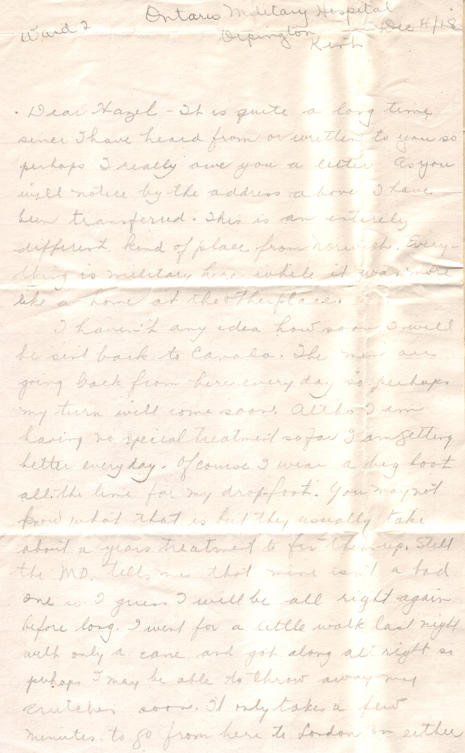 Ontario Military Hospital
Ward 2 Orpington Dec 4/18
Kent
Dear Hazel - It is quite a long time
since I have heard from or written to you so
perhaps I really owe you a letter. As you
will notice by the address above I have
been transferred. This is an entirely
different kind of place from Norwich. Every-
thing is military here while it was more
like a home at the other place.
I haven't any idea how soon I will
be sent back to Canada. The men are
going back from here every day so perhaps
my turn will come soon. Altho I am
having no special treatment so far I am getting
better every day. Of course I wear a big boot
all the time for my dropfoot. You may not
know what that is but they usually take
about a years treatment to fix them up. Still
the M.D. tells me that mine isn't a bad
one so I guess I will be all right again
before long. I went for a little walk last night
with only a cane and got along all right so
perhaps I may be able to throw away my
crutches soon. It only takes a few
minutes to go from here to London in either